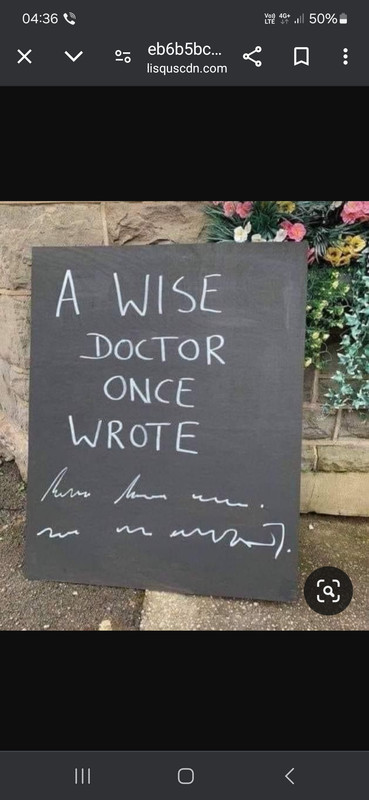 04:36
Vo)) LTE 4G+ 50%
eb6b5bc...
lisquscdn.com
A WISE
DOCTOR
ONCE
WROTE